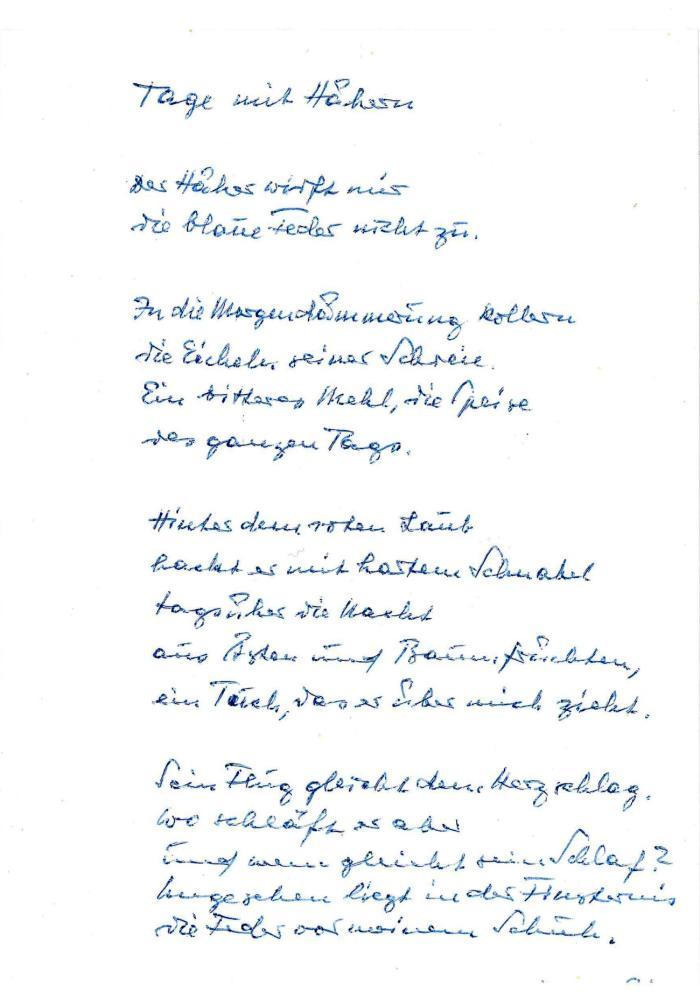 Tage mit Hähern
Der Häher wirft mir
die blaue Feder nicht zu.
In die Morgendämmerung kollern
die Eicheln seiner Schreie.
Ein bitteres Mehl, die Speise
des ganzen Tags.
Hinter dem roten Laub
hackt er mit hartem Schnabel
tagsüber die Nacht
aus Ästen und Baumfrüchten,
ein Tuch, das er über mich zieht.
Sein Flug gleicht dem Herzschlag.
Wo schläft er aber
und wem gleicht sein Schlaf?
Ungesehen liegt in der Finsternis
die Feder vor meinem Schuh.